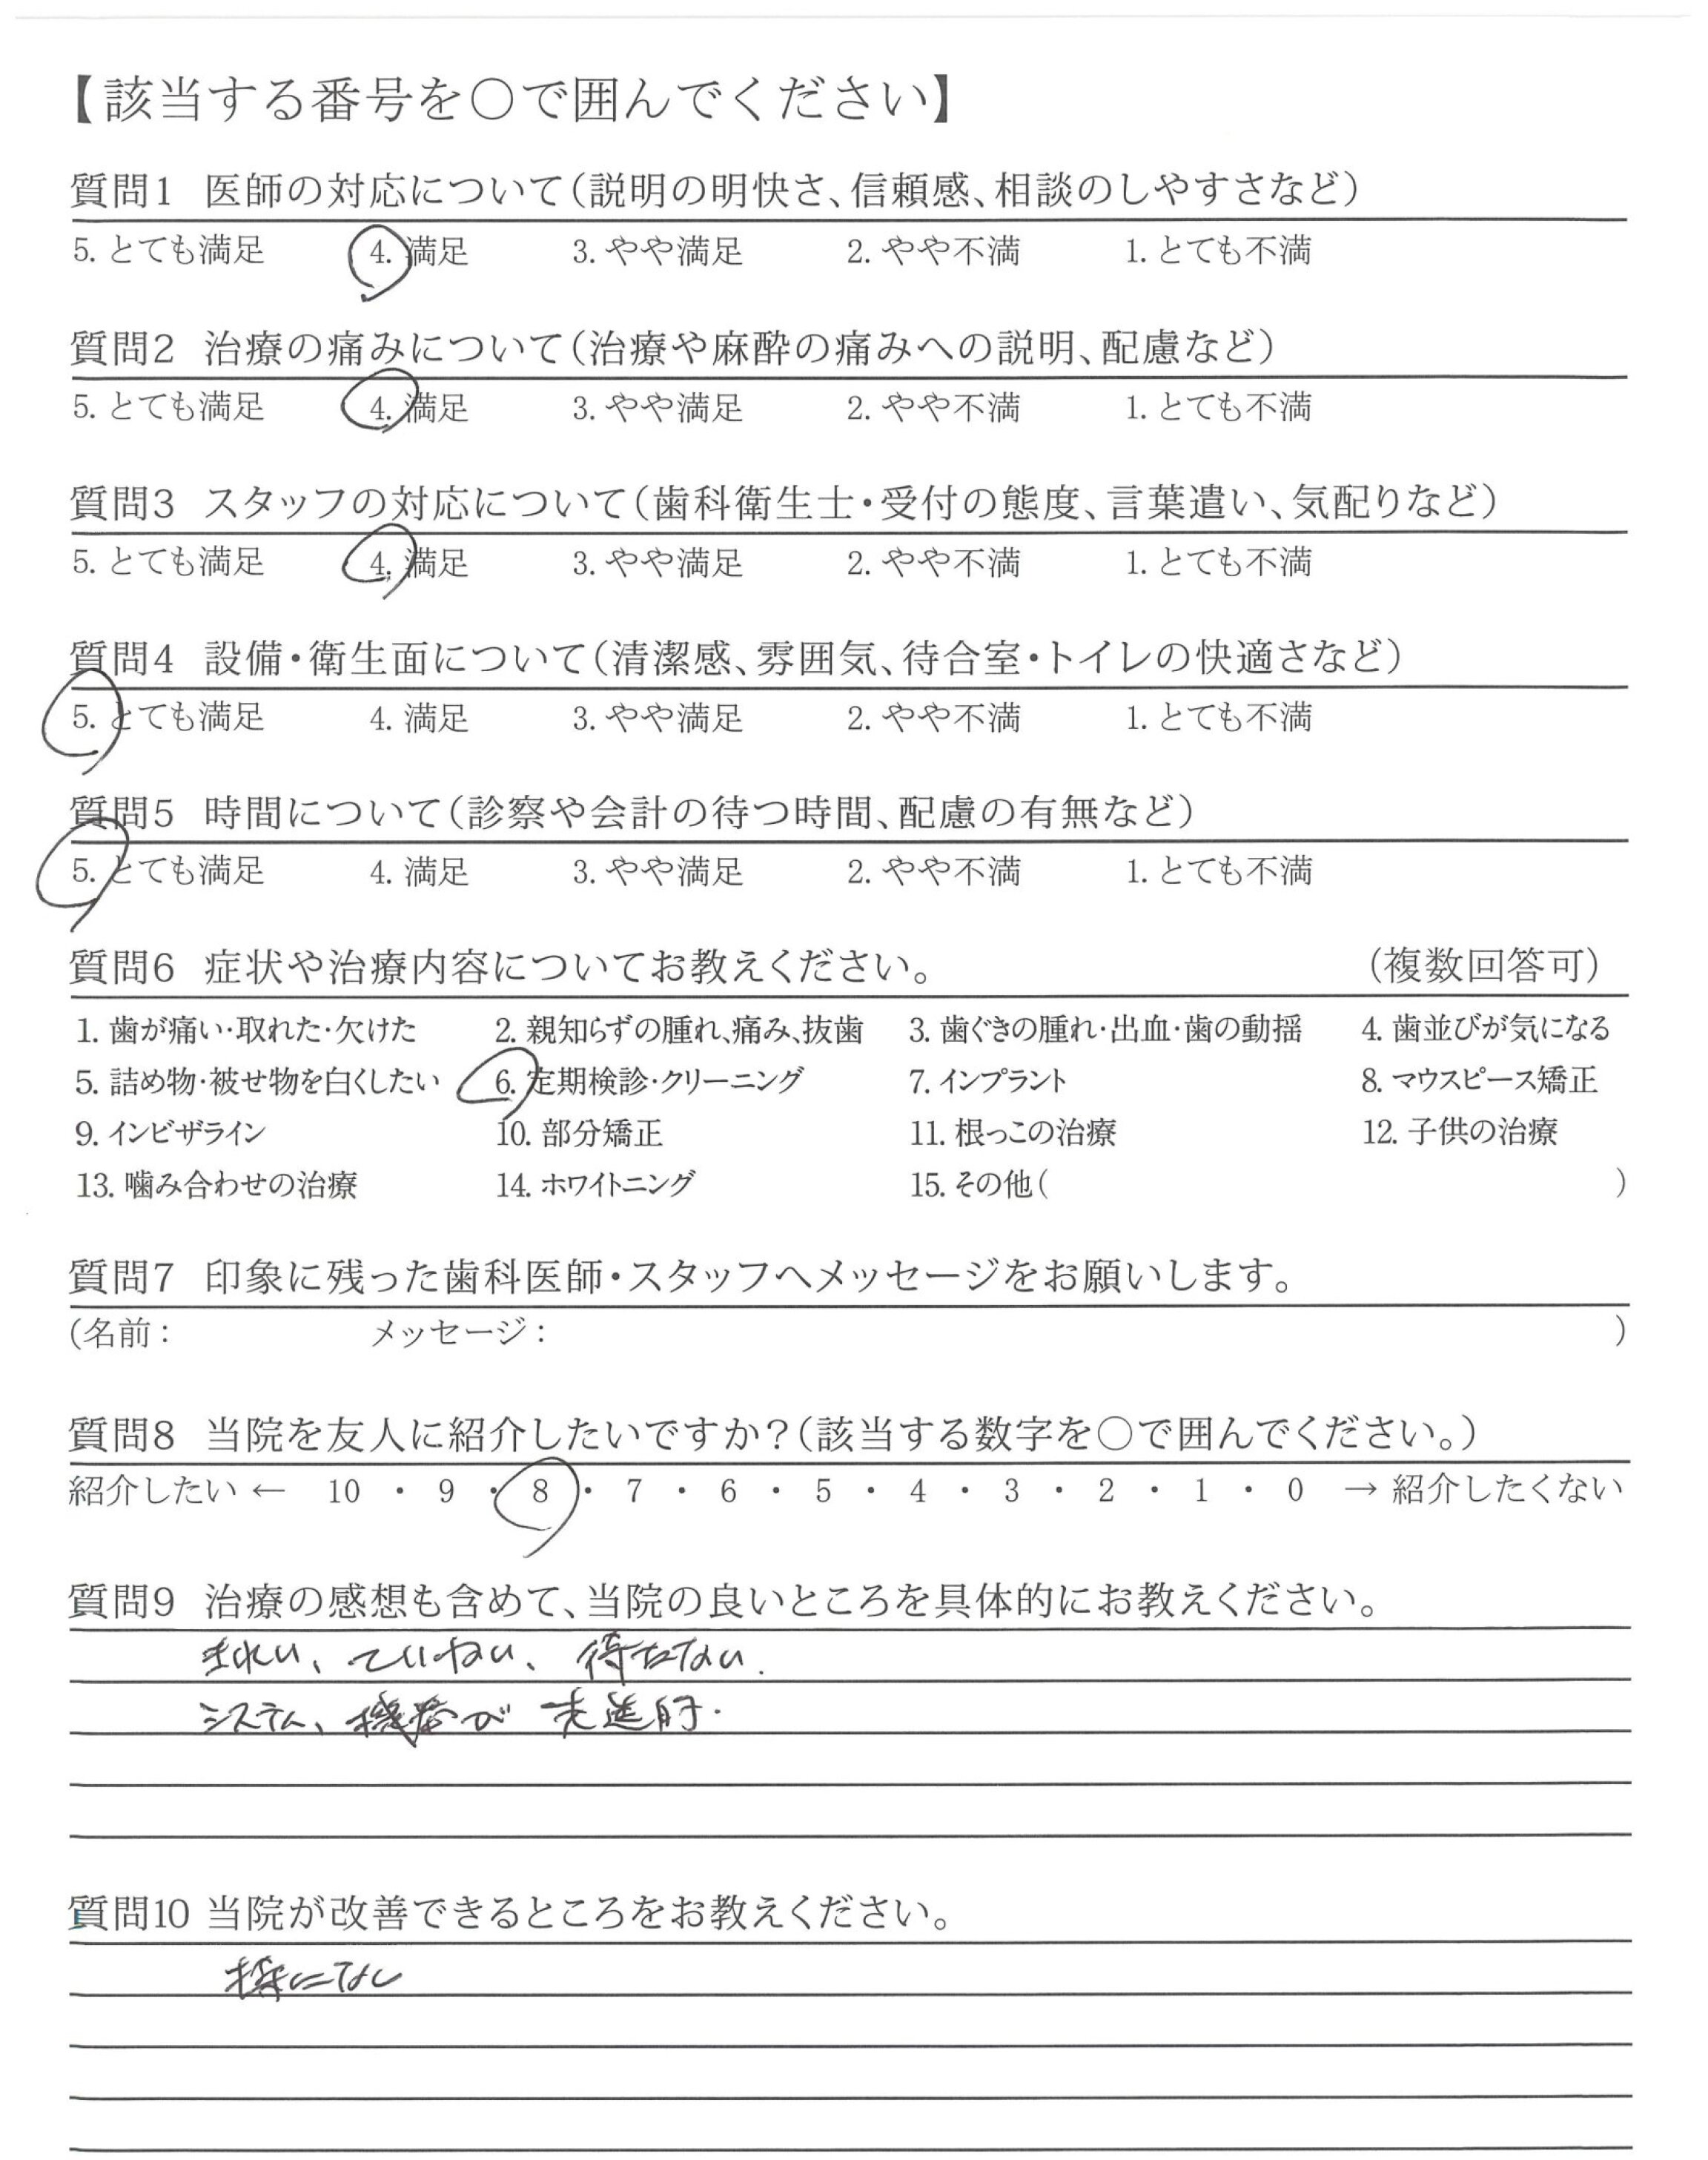 【該当する番号を〇で囲んでください】
質問1 医師の対応について(説明の明快さ、信頼感、相談のしやすさなど)
5. とても満足 4. 満足 3. やや満足 2. やや不満 1. とても不満
質問2 治療の痛みについて(治療や麻酔の痛みへの説明、配慮など)
5. とても満足 4. 満足 3. やや満足 2. やや不満 1. とても不満
質問3 スタッフの対応について(歯科衛生士・受付の態度、言葉遣い、気配りなど)
5. とても満足 4. 満足 3. やや満足 2. やや不満 1. とても不満
質問4 設備・衛生面について(清潔感、雰囲気、待合室・トイレの快適さなど)
5. とても満足 4. 満足 3. やや満足 2. やや不満 1. とても不満
質問5 時間について(診察や会計の待つ時間、配慮の有無など)
5. とても満足 4. 満足 3. やや満足 2. やや不満 1. とても不満
質問6 症状や治療内容についてお教えください。 (複数回答可)
1. 歯が痛い・取れた・欠けた 2. 親知らずの腫れ、痛み、抜歯 3. 歯ぐきの腫れ・出血・歯の動揺 4. 歯並びが気になる
5. 詰め物・被せ物を白くしたい 6. 定期検診・クリーニング 7. インプラント 8. マウスピース矯正
9. インビザライン 10. 部分矯正 11. 根っこの治療 12. 子供の治療
13. 噛み合わせの治療 14. ホワイトニング 15. その他( )
質問7 印象に残った歯科医師・スタッフへメッセージをお願いします。
(名前: メッセージ: )
質問8 当院を友人に紹介したいですか?(該当する数字を〇で囲んでください。)
紹介したい ← 10 ・ 9 ・ 8 ・ 7 ・ 6 ・ 5 ・ 4 ・ 3 ・ 2 ・ 1 ・ 0 → 紹介したくない
質問9 治療の感想も含めて、当院の良いところを具体的にお教えください。
きれい、ていねい、待たない.
システム、機器が 先進的.
質問10 当院が改善できるところをお教えください。
特になし